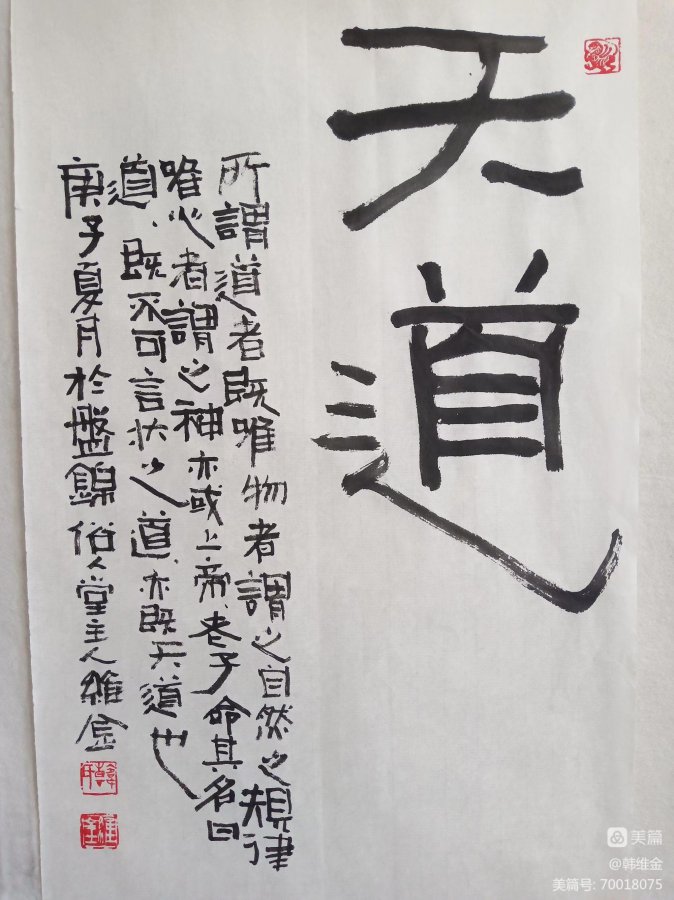 天道
所謂道者既唯物者謂之自然之規律
唯心者謂之神亦或上帝、老子命其名曰
道、既不可言状之道、亦既天道也
庚子夏月於盤錦俗人堂主人維金
美篇
@韩维金
美篇号: 70018075